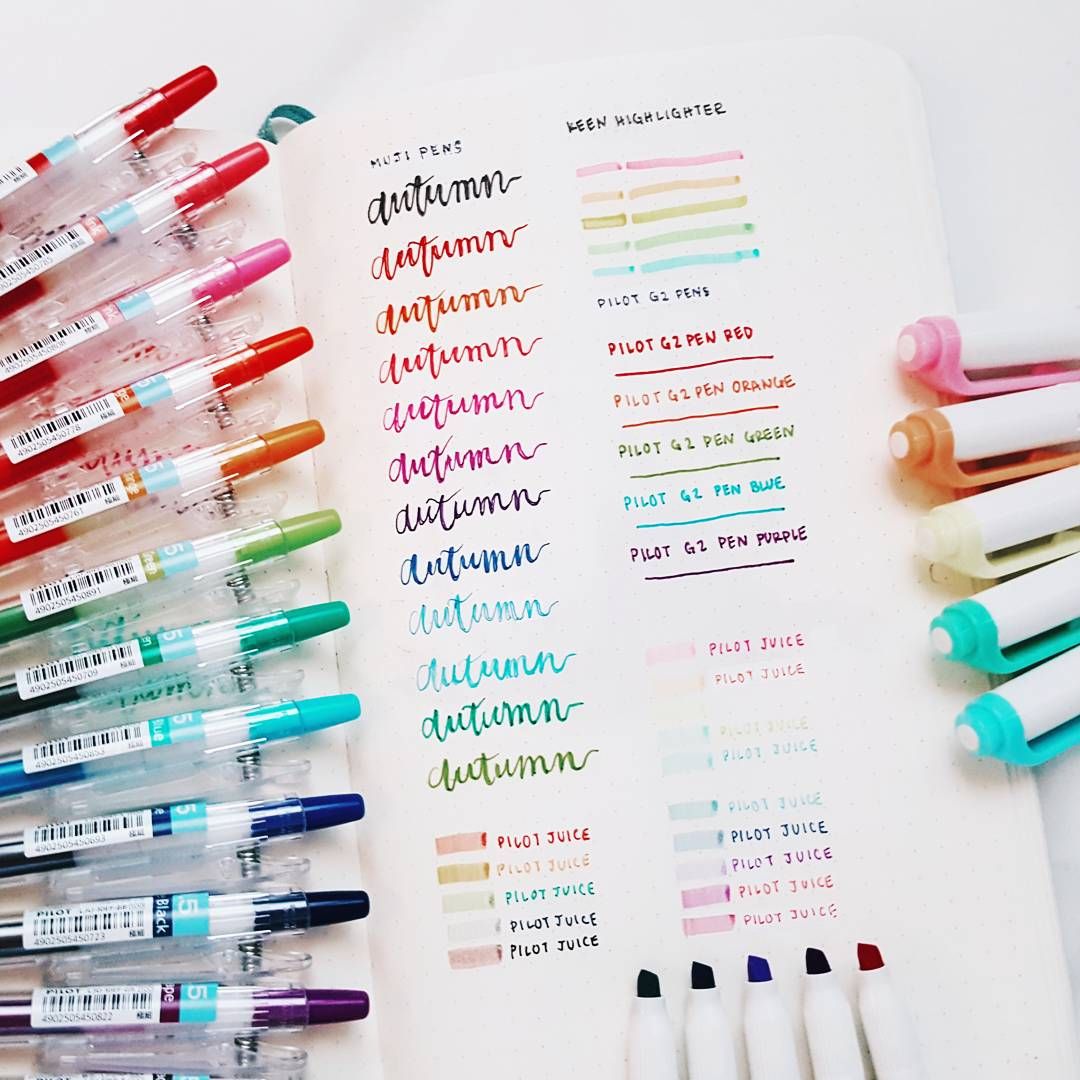 MUJI PENS
autumn
autumn
autumn
autumn
autumn
autumn
autumn
autumn
autumn
autumn
autumn
autumn
PILOT JUICE
PILOT JUICE
PILOT JUICE
PILOT JUICE
PILOT JUICE
KEEN HIGHLIGHTER
PILOT G2 PENS
PILOT G2 PEN RED
PILOT G2 PEN ORANGE
PILOT G2 PEN GREEN
PILOT G2 PEN BLUE
PILOT G2 PEN PURPLE
PILOT JUICE
PILOT JUICE
PILOT JUICE
PILOT JUICE
PILOT JUICE
PILOT JUICE
PILOT JUICE
PILOT JUICE
PILOT JUICE
4902505450785
4902505450808
4902505450778
4902505450761
5
4902505450891
5
4902505450709
5
Blue
4902505450853
5
4902505450693
5
PILOT
Black
4902505450723
5
4902505450822
5